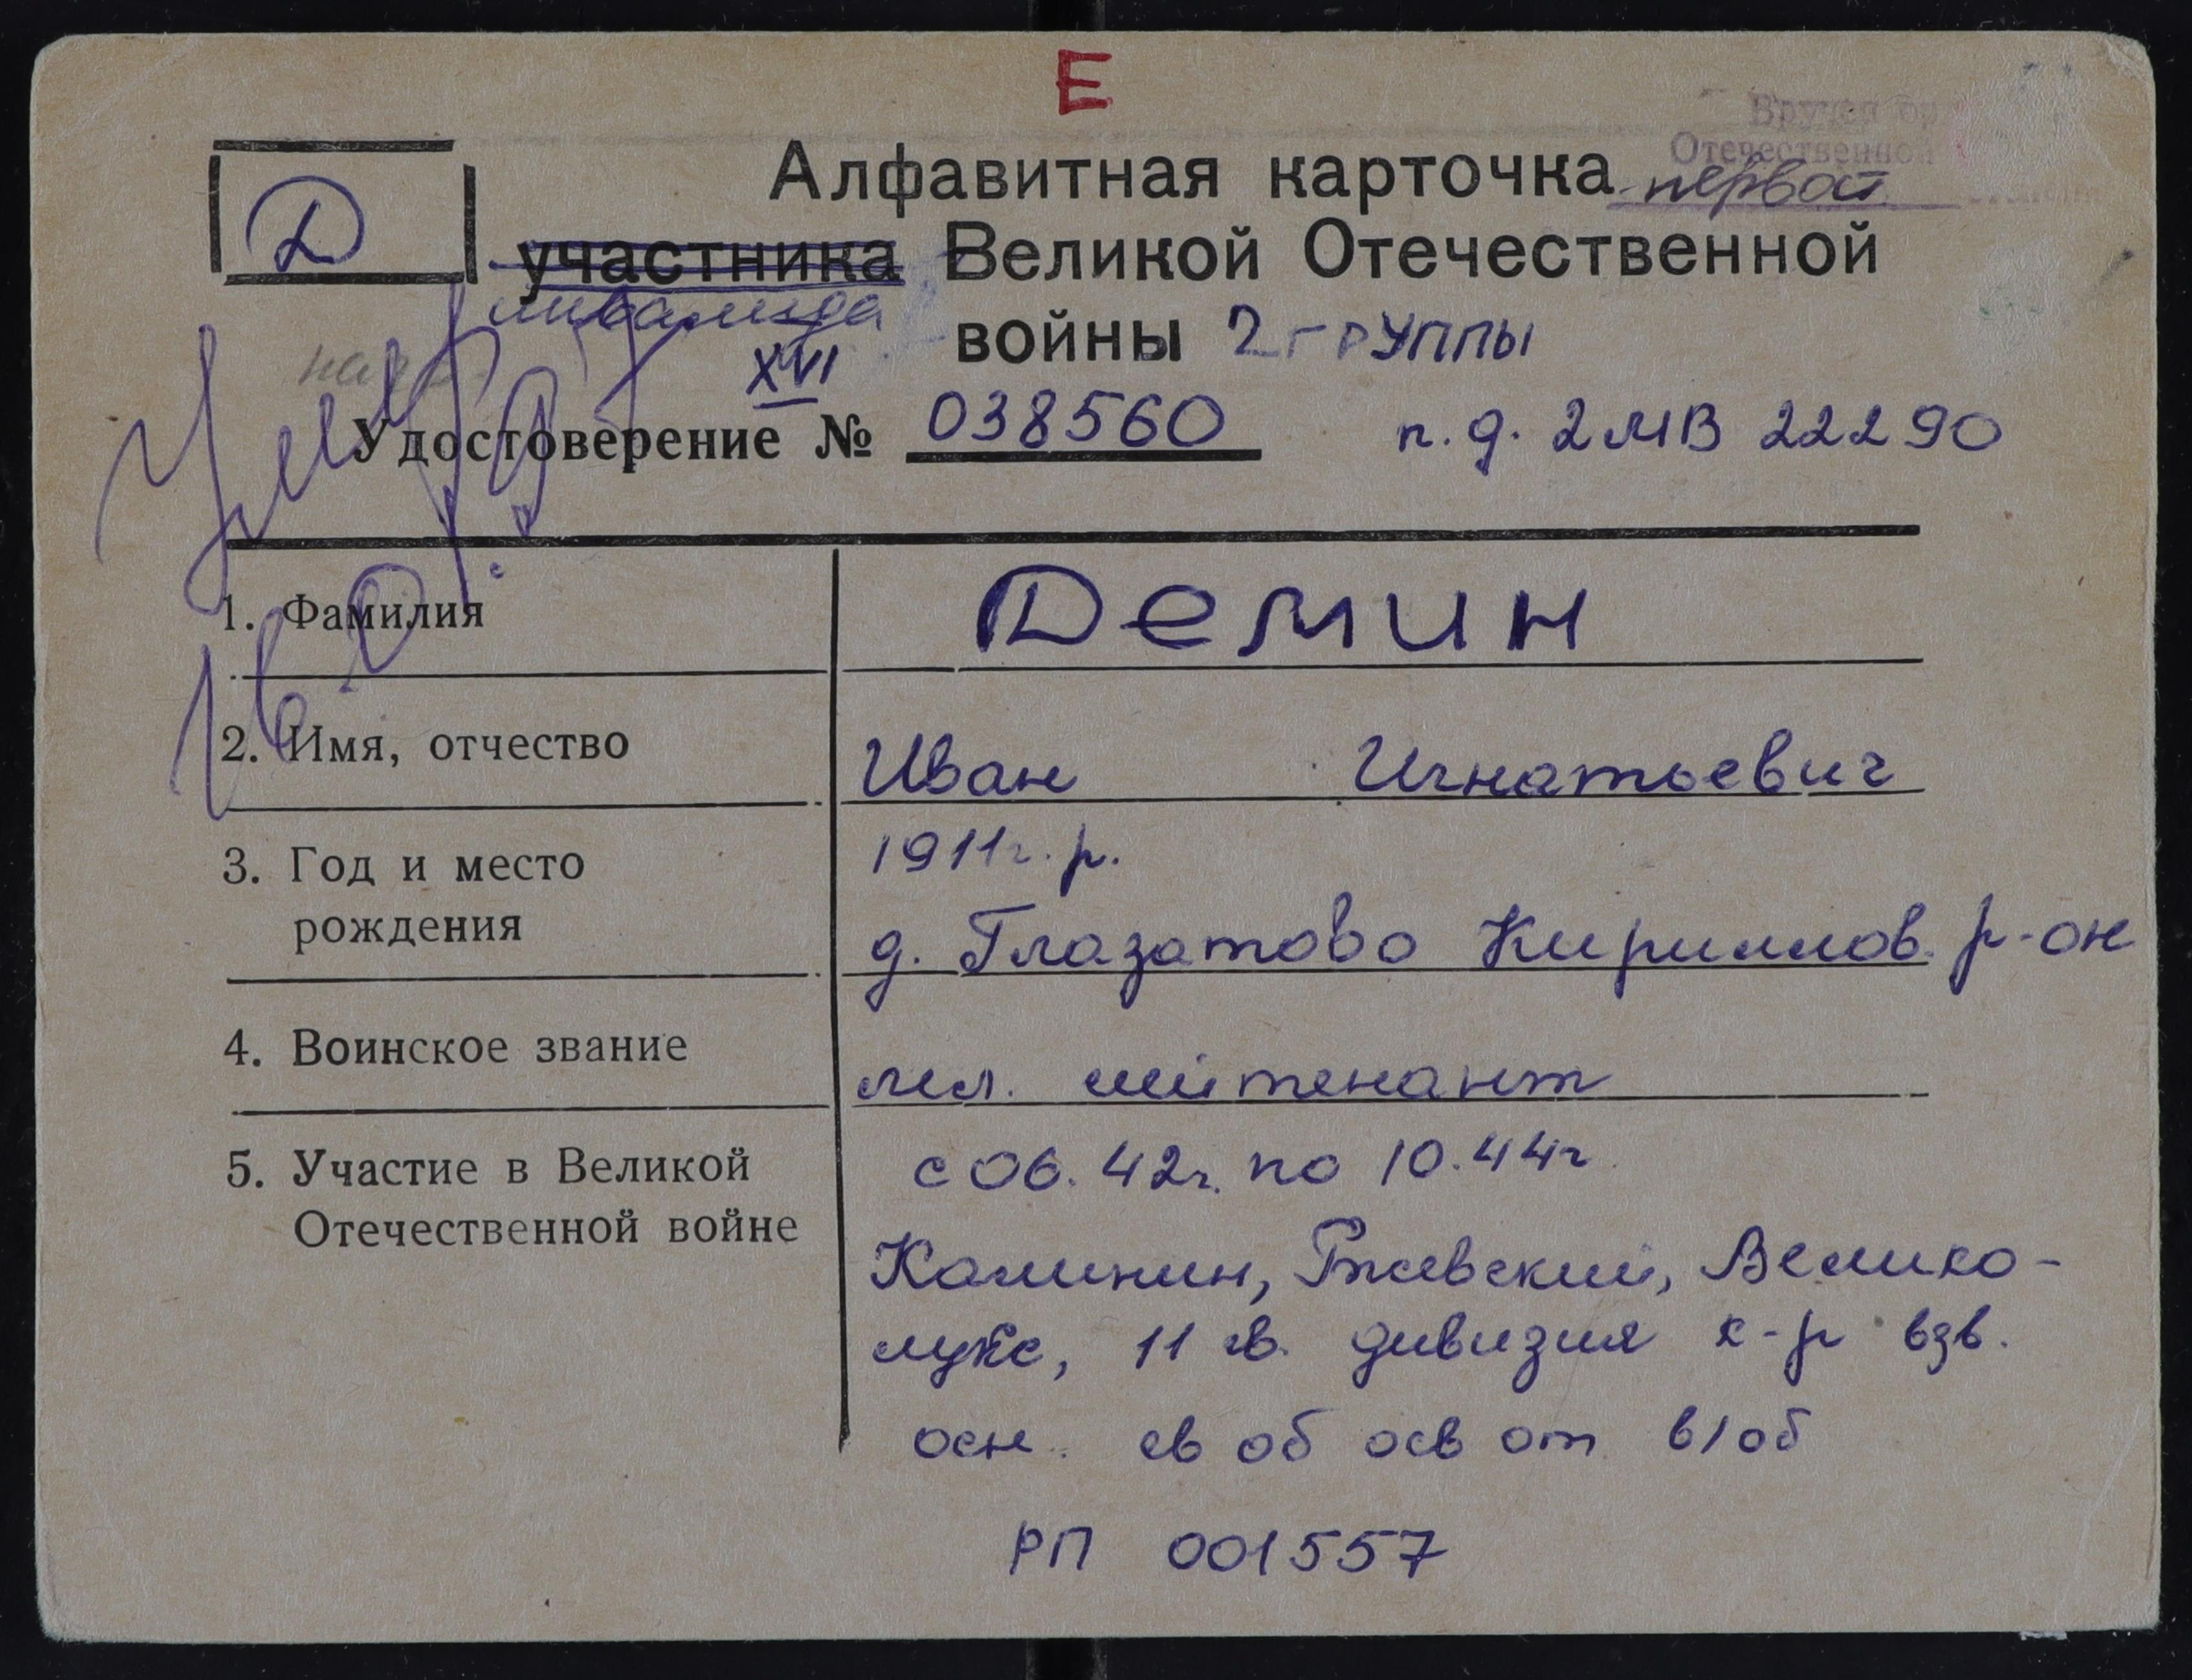 Е
Вручен ор
Отечественной
Д
Алфавитная карточка первой
участника Великой Отечественной
инвалида
войны 2 группы
XVI
Удостоверение № 038560 п.д. 2МВ 22290
Умер
1. Фамилия Демин
2. Имя, отчество Иван Игнатьевич
3. Год и место 1911г.р.
рождения д. Глазатово Кириллов. р-он
4. Воинское звание мл. лейтенант
5. Участие в Великой с 06.42г. по 10.44г.
Отечественной войне Калинин, Ржевский, Велико-
лукс, 11 гв. дивизия к-р взв.
осн. св об осв от в/об
РП 001557